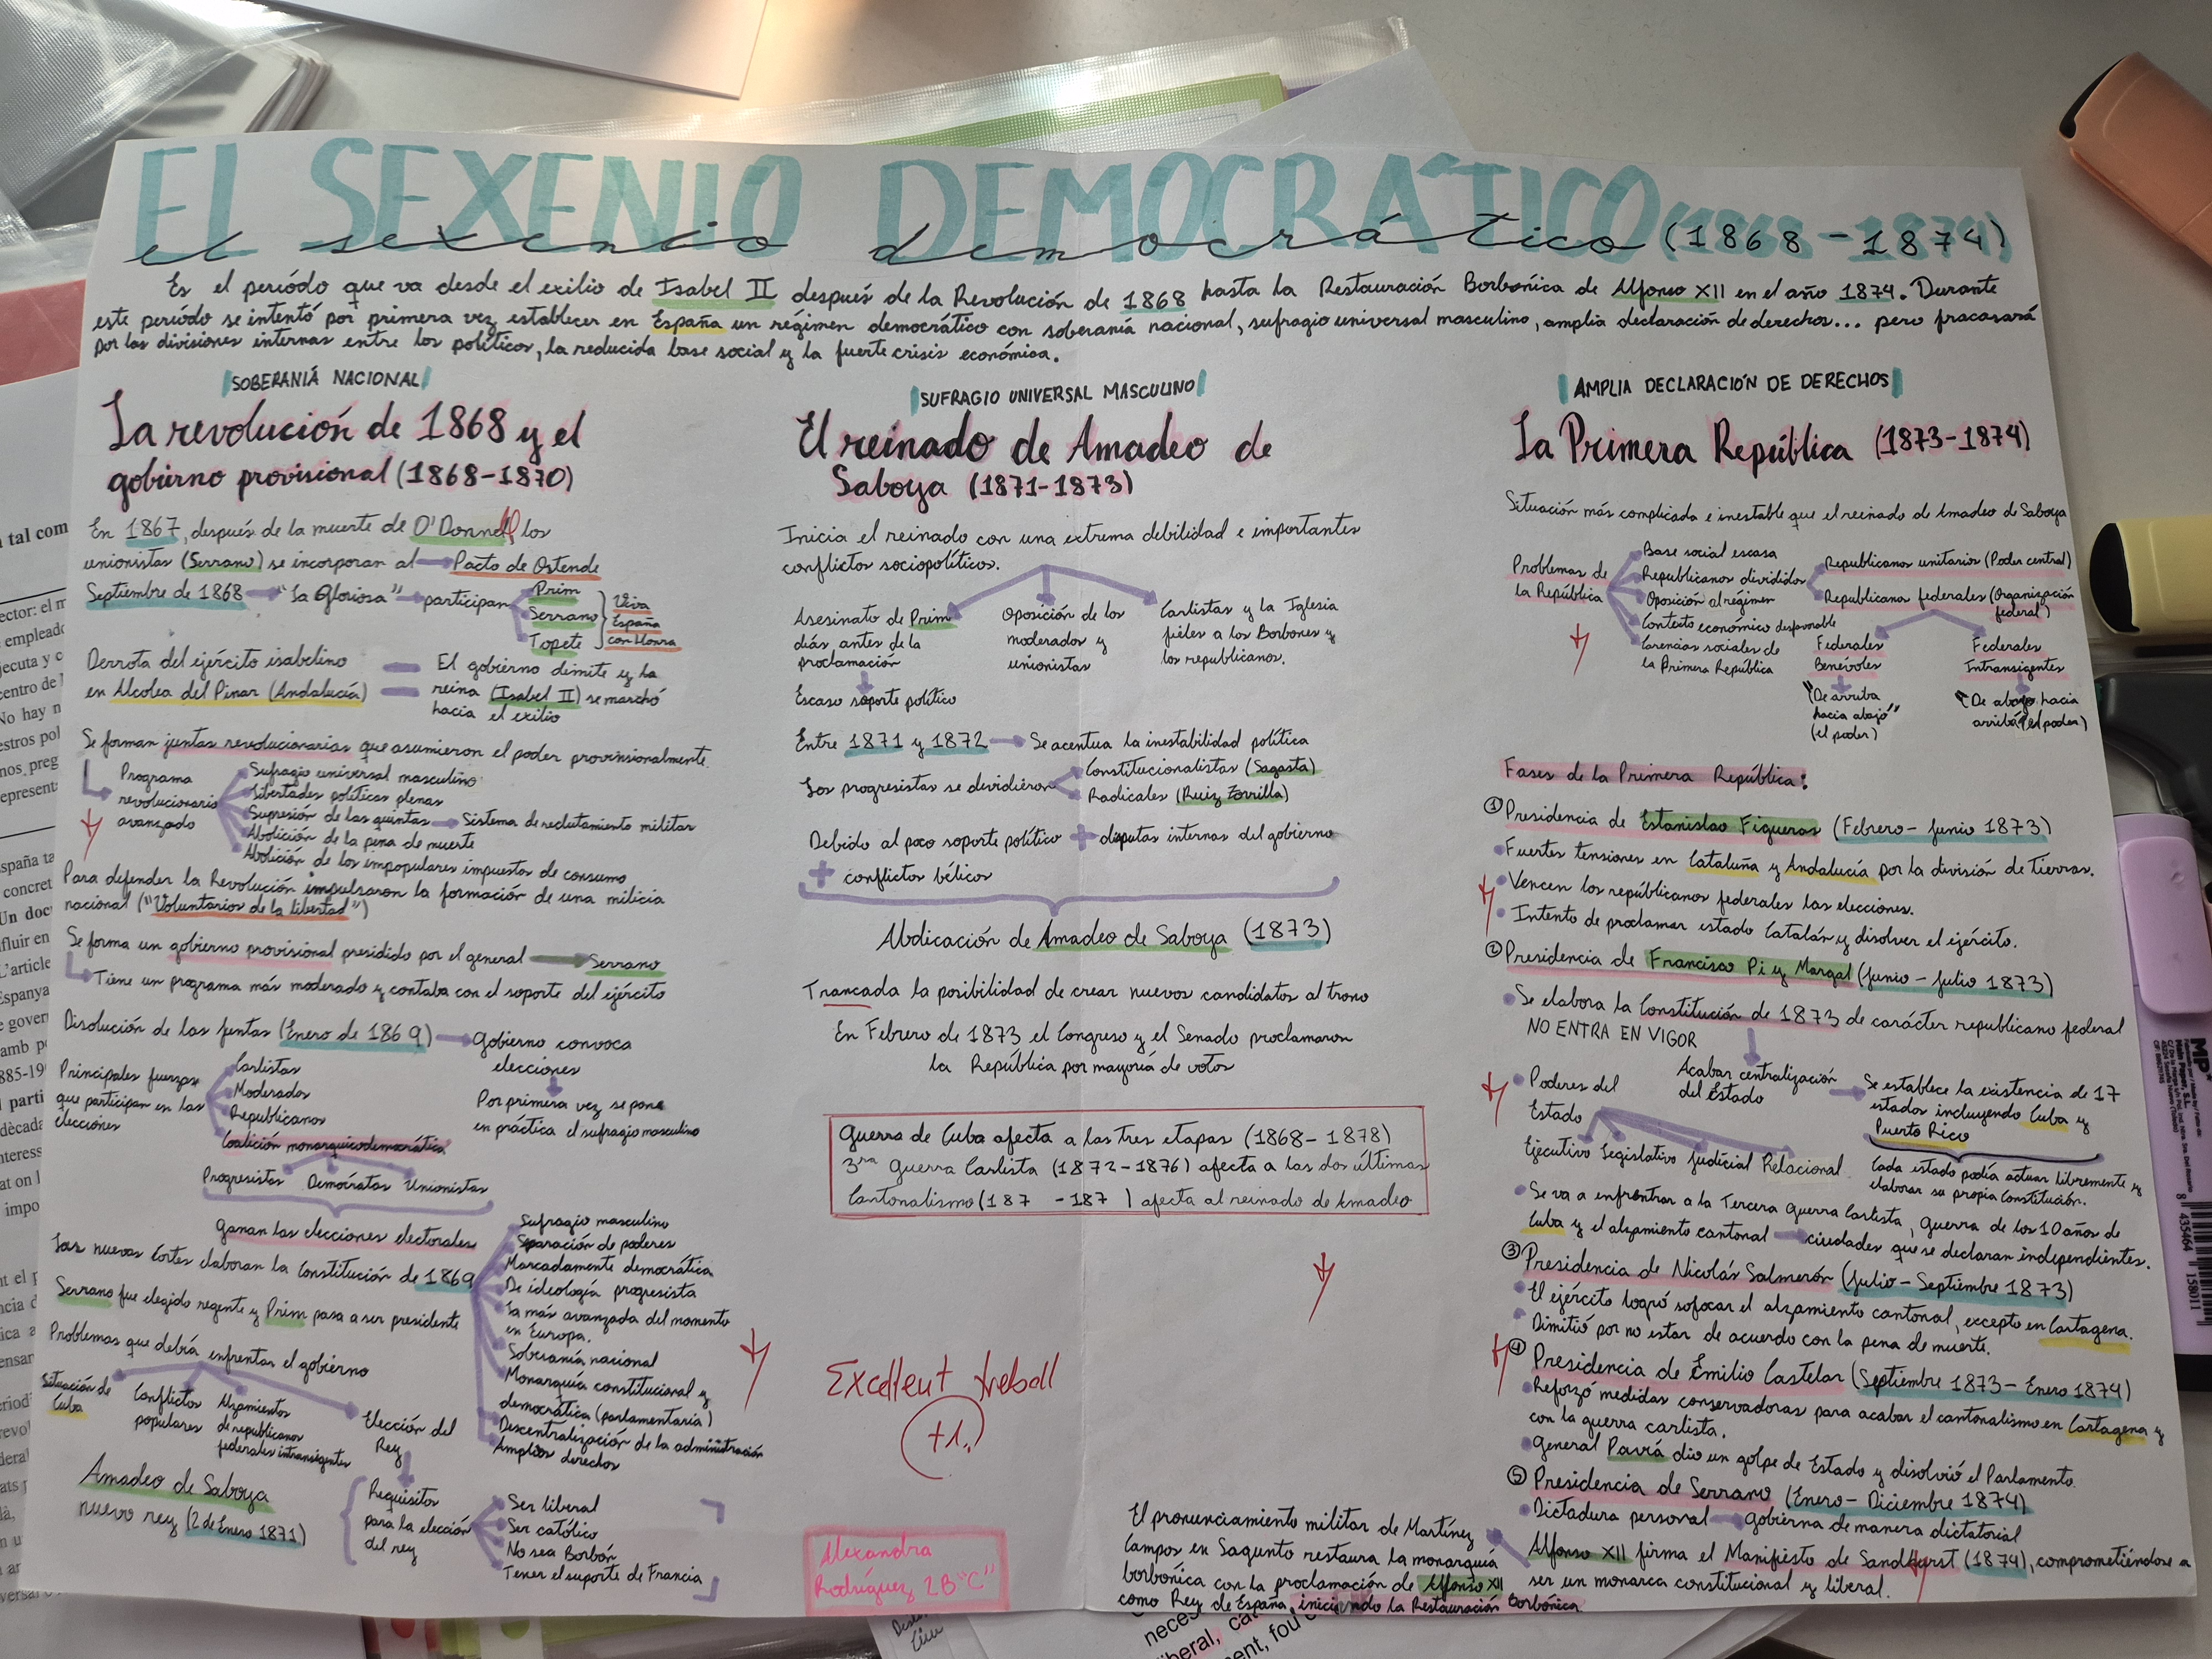 EL SEXENIO DEMOCRÁTICO (1868-1874)
el sexenio democrático
Es el período que va desde el exilio de Isabel II después de la Revolución de 1868 hasta la Restauración Borbónica de Alfonso XII en el año 1874. Durante
este período se intentó por primera vez establecer en España un régimen democrático con soberanía nacional, sufragio universal masculino, amplia declaración de derechos... pero fracasará
por las divisiones internas entre los políticos, la reducida base social y la fuerte crisis económica.
SOBERANÍA NACIONAL
La revolución de 1868 y el
gobierno provisional (1868-1870)
En 1867, después de la muerte de O'Donnell los
unionistas (Serrano) se incorporan al → Pacto de Ostende
Septiembre de 1868 → "La gloriosa" → participan
Prim
Serrano
Topete
"Viva
España
con honra
Derrota del ejército isabelino
en Alcolea del Pinar (Andalucía)
El gobierno dimite y la
reina (Isabel II) se marchó
hacia el exilio
Se forman juntas revolucionarias que asumieron el poder provisionalmente.
Programa
revolucionario
avanzado
Sufragio universal masculino
Libertades políticas plenas
Supresión de las quintas → Sistema de reclutamiento militar
Abolición de la pena de muerte
Abolición de los impopulares impuestos de consumo
Para defender la Revolución impulsaron la formación de una milicia
nacional ("Voluntarios de la libertad")
Se forma un gobierno provisional presidido por el general → Serrano
Tiene un programa más moderado y contaba con el soporte del ejército
Disolución de las juntas (Enero de 1869) → Gobierno convoca
elecciones
Por primera vez se pone
en práctica el sufragio masculino
Principales fuerzas
que participan en las
elecciones
Carlistas
Moderados
Republicanos
Coalición monárquicodemocrática
Progresistas Demócratas Unionistas
Ganan las elecciones electorales
Las nuevas Cortes elaboran la Constitución de 1869
Sufragio masculino
Separación de poderes
Marcadamente democrática
De ideología progresista
La más avanzada del momento
en Europa.
Soberanía nacional
Monarquía constitucional y
democrática (parlamentaria)
Descentralización de la administración
Amplios derechos
Serrano fue elegido regente y Prim pasa a ser presidente
Problemas que debió enfrentar el gobierno
Situación de
Cuba
Conflictos
populares
Alzamientos
de republicanos
federales intransigentes
Elección del
Rey
Requisitos
para la elección
del rey
Ser liberal
Ser católico
No sea Borbón
Tener el suporte de Francia
Amadeo de Saboya
nuevo rey (2 de enero 1871)
SUFRAGIO UNIVERSAL MASCULINO
El reinado de Amadeo de
Saboya (1871-1873)
Inicia el reinado con una extrema debilidad e importantes
conflictos sociopolíticos.
Asesinato de Prim
días antes de la
proclamación
Escaso soporte político
Oposición de los
moderados y
unionistas
Carlistas y la Iglesia
fieles a los Borbones y
los republicanos.
Entre 1871 y 1872 → Se acentúa la inestabilidad política
Los progresistas se dividieron
Constitucionalistas (Sagasta)
Radicales (Ruiz Zorrilla)
Debido al poco soporte político + disputas internas del gobierno
+ conflictos bélicos
Abdicación de Amadeo de Saboya (1873)
Truncada la posibilidad de crear nuevos candidatos al trono
En Febrero de 1873 el Congreso y el Senado proclamaron
la República por mayoría de votos
Guerra de Cuba afecta a las tres etapas (1868-1878)
3ra Guerra Carlista (1872-1876) afecta a las dos últimas
Cantonalismo (187 -187 ) afecta al reinado de Amadeo
Excel·lent treball
+1,
Alexandra
Rodríguez 2B"C"
AMPLIA DECLARACIÓN DE DERECHOS
La Primera República (1873-1874)
Situación más complicada e inestable que el reinado de Amadeo de Saboya
Problemas de
la República
Base social escasa
Republicanos divididos
Oposición al régimen
Contexto económico desfavorable
Carencias sociales de
la Primera República
Republicanos unitarios (Poder central)
Republicanos federales (Organización
federal)
Federales
Benévolos
"De arriba
hacia abajo"
(el poder)
Federales
Intransigentes
"De abajo hacia
arriba" (el poder)
Fases de la Primera República:
① Presidencia de Estanislao Figueras (Febrero - Junio 1873)
• Fuertes tensiones en Cataluña y Andalucía por la división de Tierras.
• Vencen los republicanos federales las elecciones.
• Intento de proclamar estado Catalán y disolver el ejército.
② Presidencia de Francisco Pi y Margal (Junio - Julio 1873)
• Se elabora la Constitución de 1873 de carácter republicano federal
NO ENTRA EN VIGOR
Acabar centralización
del Estado
Se establece la existencia de 17
estados incluyendo Cuba y
Puerto Rico
Cada estado podía actuar libremente y
elaborar su propia Constitución.
• Poderes del
Estado
Ejecutivo Legislativo Judicial Relacional
• Se va a enfrentar a la Tercera guerra Carlista, Guerra de los 10 años de
Cuba y el alzamiento cantonal → ciudades que se declaran independientes.
③ Presidencia de Nicolás Salmerón (Julio - Septiembre 1873)
• El ejército logró sofocar el alzamiento cantonal, excepto en Cartagena.
• Dimitió por no estar de acuerdo con la pena de muerte.
④ Presidencia de Emilio Castelar (Septiembre 1873 - Enero 1874)
• Reforzó medidas conservadoras para acabar el cantonalismo en Cartagena y
con la guerra carlista.
• General Pavía dio un golpe de Estado y disolvió el Parlamento
⑤ Presidencia de Serrano (Enero - Diciembre 1874)
• Dictadura personal → gobierna de manera dictatorial
• Alfonso XII firma el Manifiesto de Sandhurst (1874), comprometiéndose a
ser un monarca constitucional y liberal.
El pronunciamiento militar de Martínez
Campos en Sagunto restaura la monarquía
borbónica con la proclamación de Alfonso XII
como Rey de España, iniciando la Restauración borbónica
MP
Main Paper, S.L.
8 435464 158011